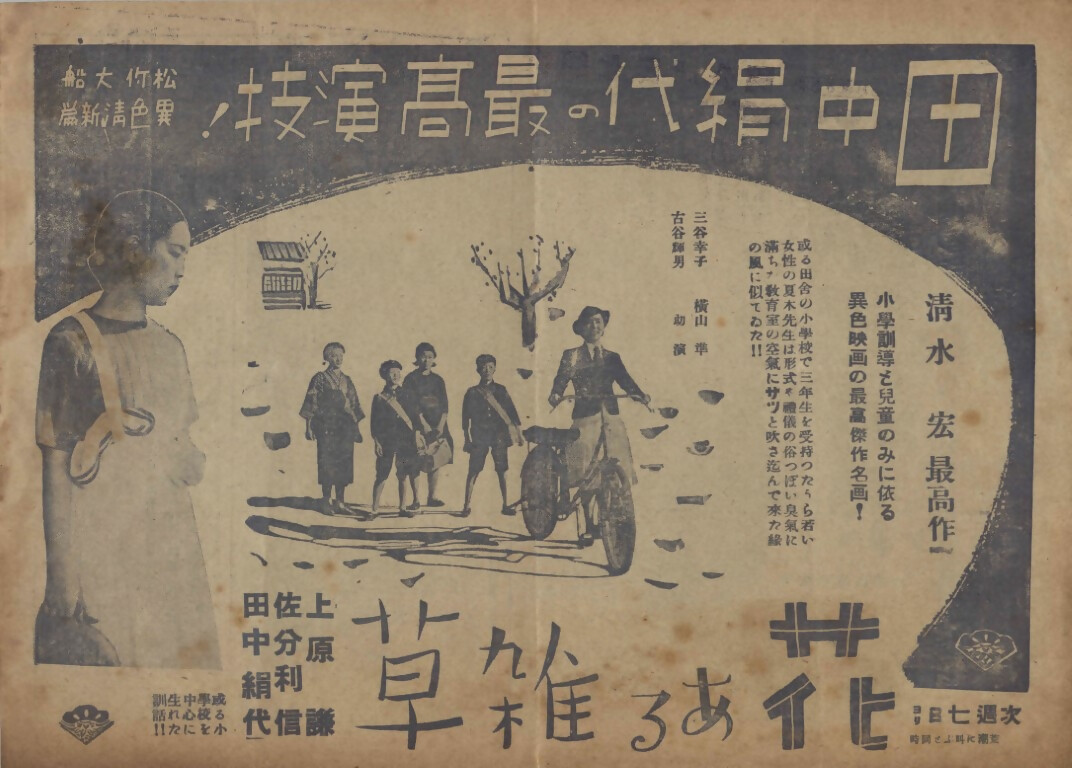 田中絹代の最高演技!
松竹大船
異色清新篇
清水 宏 最高作
小學訓導と兒童のみに依る
異色映画の最高傑作名画!
或る田舎の小學校で三年生を受持つた
若い
女性の夏木先生は形式や禮儀の俗つぽい臭氣に
滿ちた教育室の空氣にサツと吹き迄んで來た緑
の風に似てゐた!!
三谷幸子 橫山 準
古谷輝男 助演
花ある雑草
上原 謙
佐分利 信
田中絹代
或る小
學校を
中心に
生れた
訓話!!
次週七日ヨリ